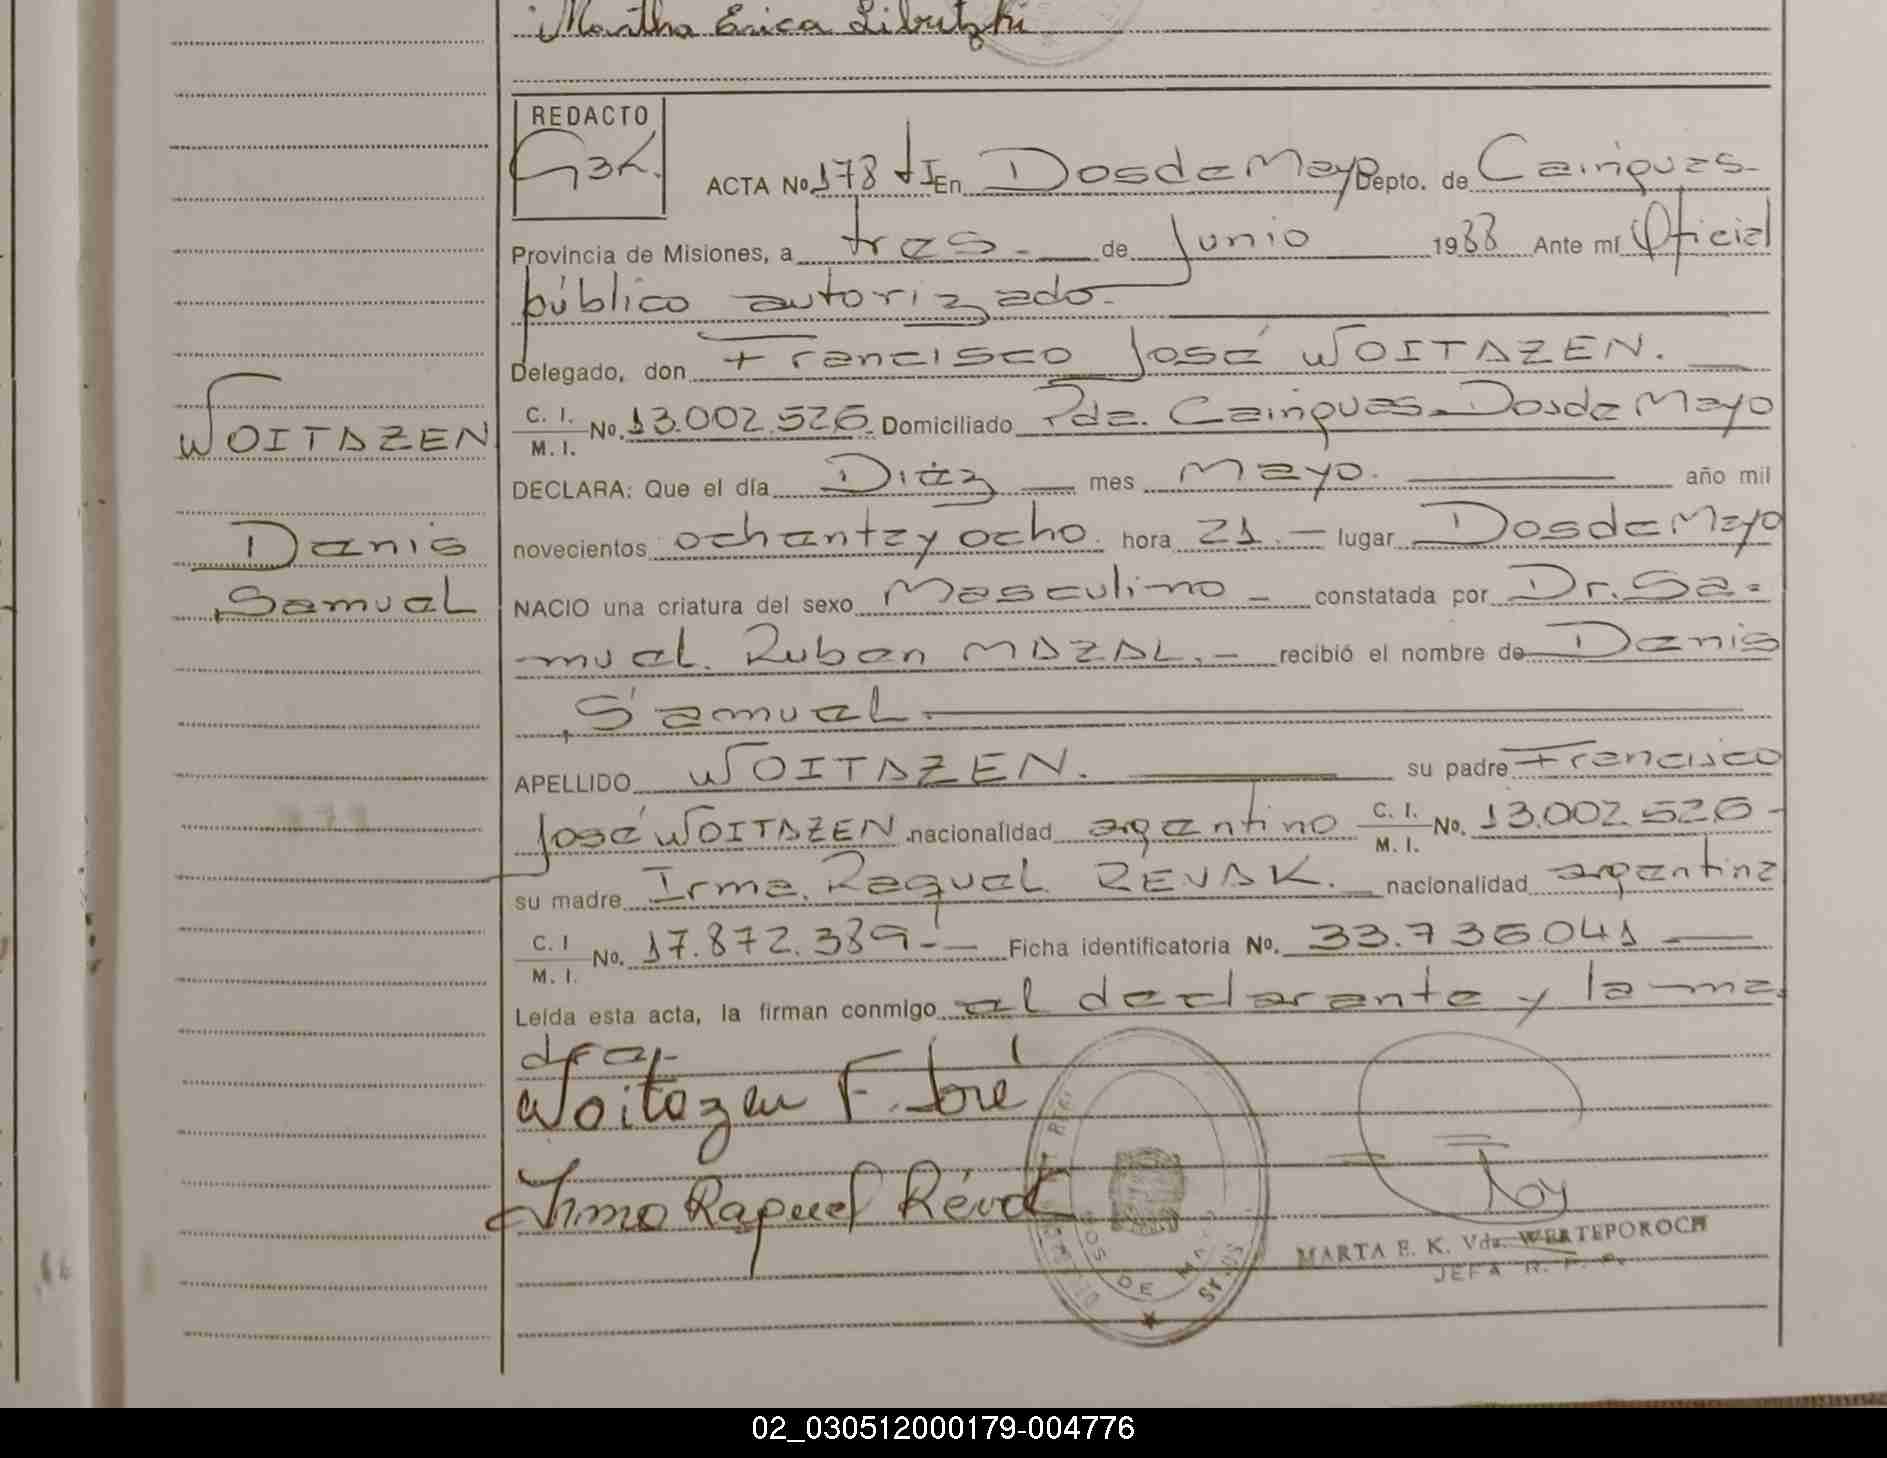 Martha Erica Libutzki
REDACTO
ACTA No 178 tI En Dos de Mayo Depto. de Cainguas
Provincia de Misiones, a tres de Junio 1988 Ante mí Oficial
público autorizado.
Delegado, don Francisco José WOITAZEN.
C. I. / M. I. No. 13.002.526 Domiciliado Pda. Cainguas-Dos de Mayo
WOITAZEN
DECLARA: Que el día Diez mes Mayo. año mil
novecientos ochenta y ocho hora 21.- lugar Dos de Mayo
Denis
Samuel
NACIO una criatura del sexo Masculino - constatada por Dr. Sa-
muel Ruben MAZAL.- recibió el nombre de Denis
Samuel
APELLIDO WOITAZEN. su padre Francisco
José WOITAZEN nacionalidad argentino C. I. / M. I. No. 13.002.526-
su madre Irma Raquel REVAK. nacionalidad argentina
C. I / M. I. No. 17.872.389.- Ficha identificatoria No. 33.736.041
Leída esta acta, la firman conmigo el declarante y la ma
dre.-
Woitazen F. José
Irma Raquel Revak
MARTA E. K. Vda. WERTEPOROCH
JEFA R. P. P.
02_030512000179-004776